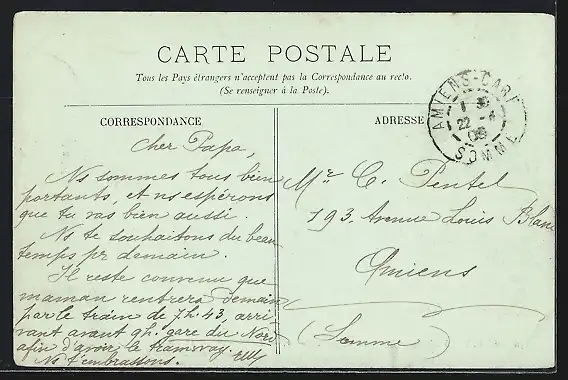 CARTE POSTALE
Tous les Pays étrangers n'acceptent pas la Correspondance au recto.
(Se renseigner à la Poste).
CORRESPONDANCE
Cher Papa,
Ns sommes tous bien
portants, et ns espérons
que tu vas bien aussi.
Ns te souhaitons du beau
temps pr demain.
Il reste convenu que
maman rentrera demain
par le train de 7h.43, arri
vant avant 9h. gare du Nord
afin d'avoir le tramway.
Ns t'embrassons.
ADRESSE
Mr C. Pentel
193, Avenue Louis Blanc
Amiens
(Somme)
AMIENS-GARE
22 -4
09
SOMME